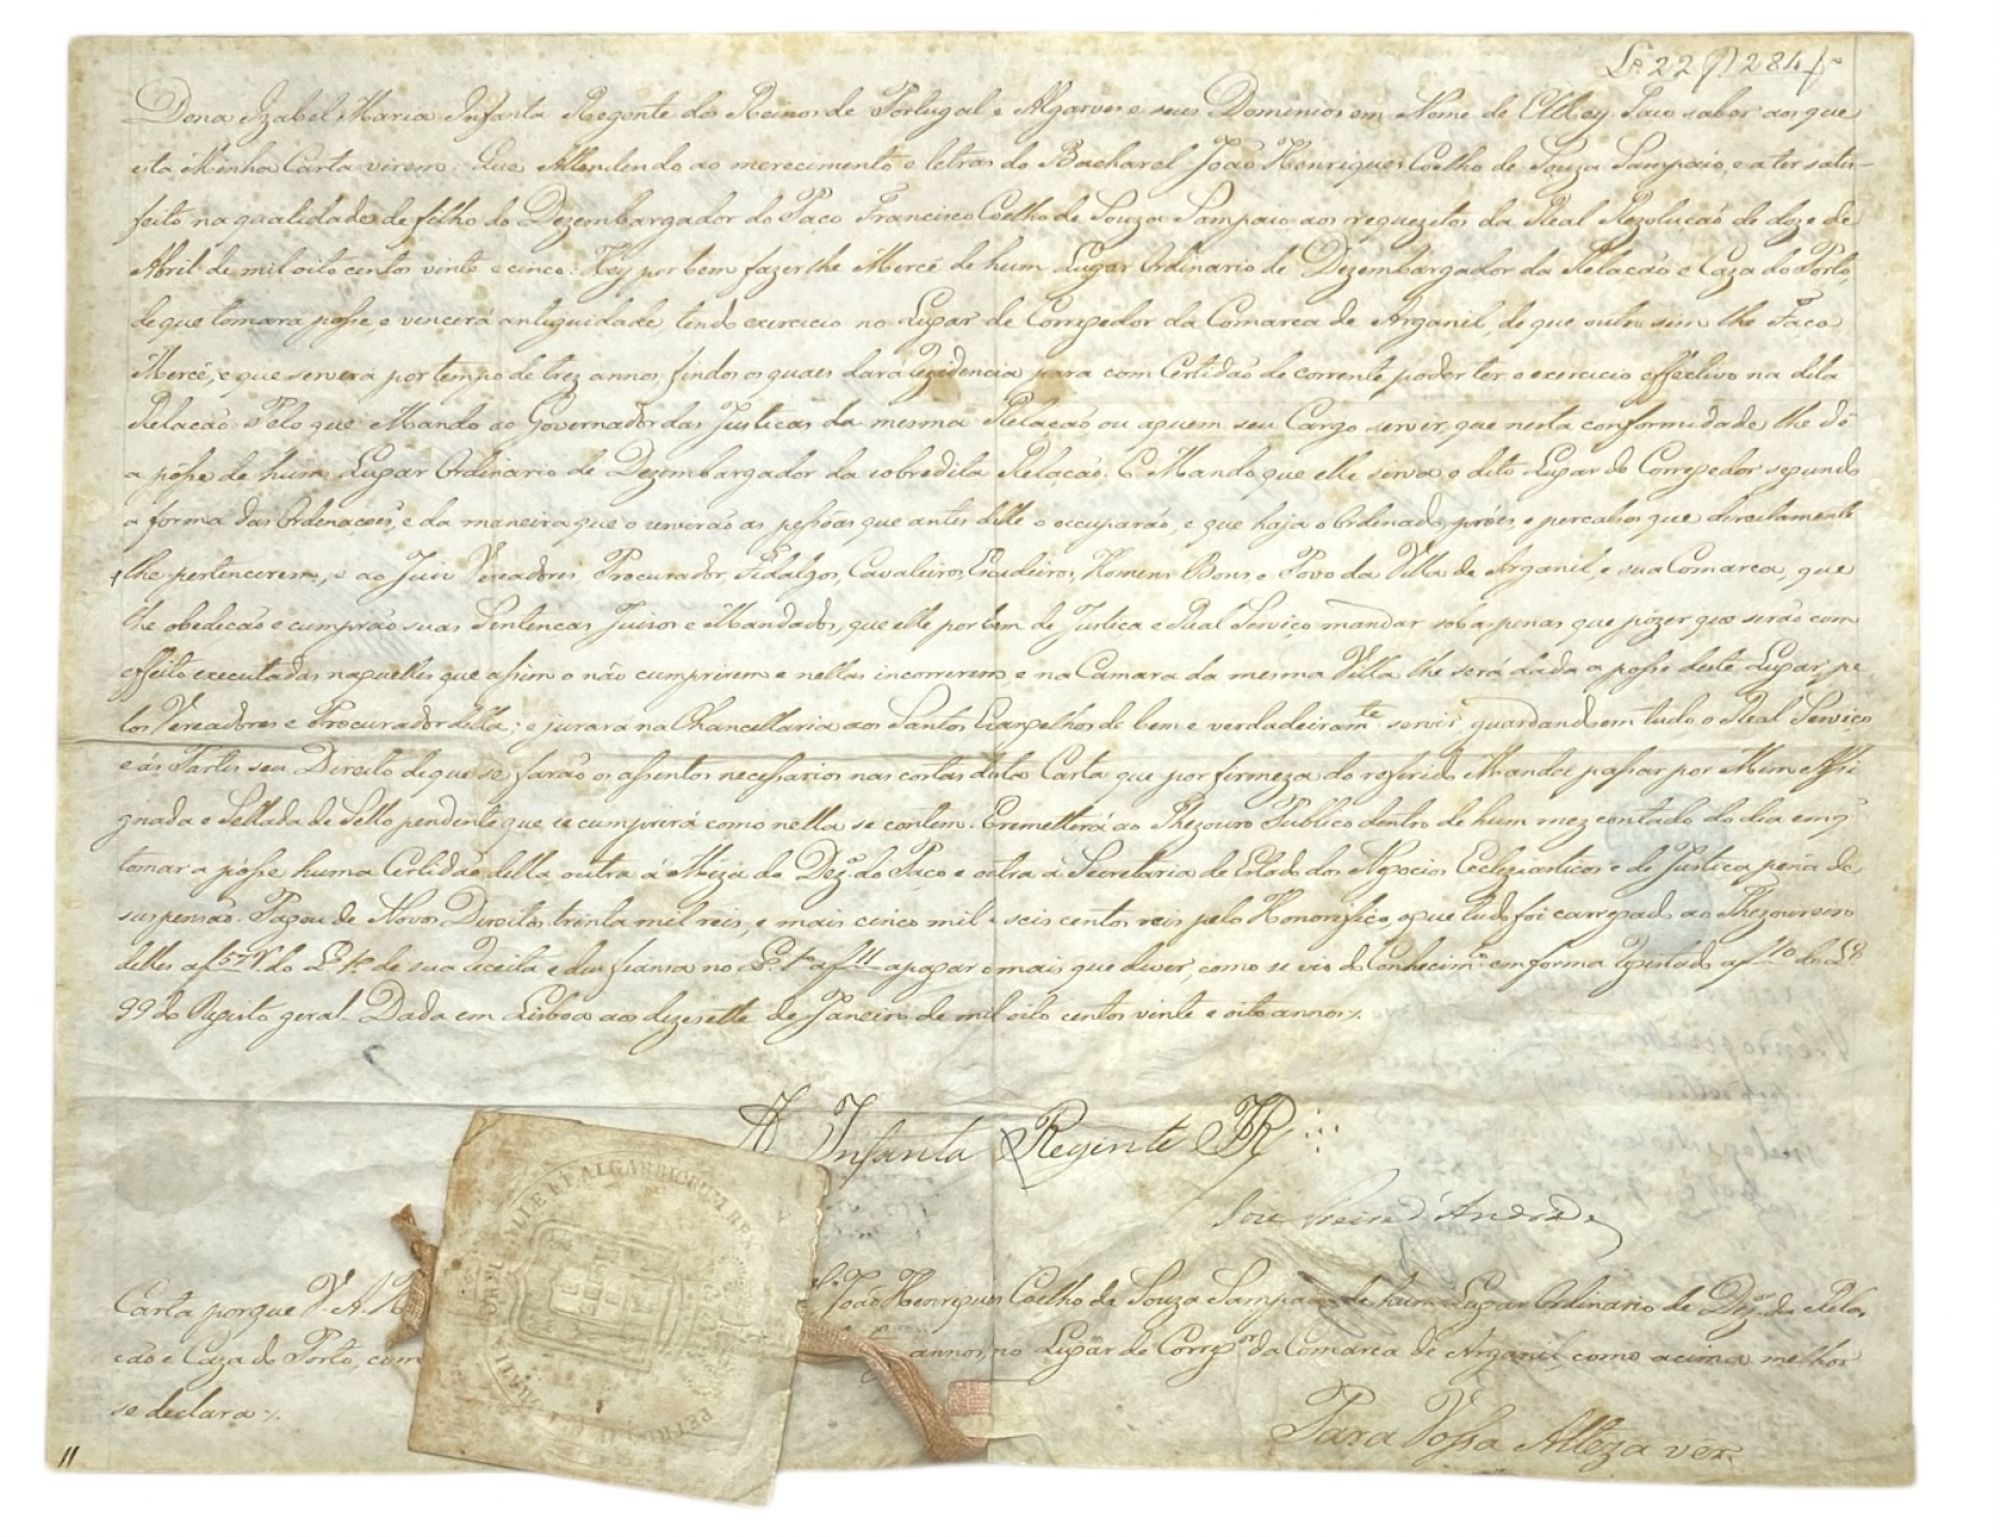 Lº 22 f 284 v
Dona Izabel Maria Infanta Regente dos Reinos de Portugal e Algarves e seus Dominios em Nome de ElRey Faço saber aos que
esta Minha Carta virem: Que Attendendo ao merecimento e letras do Bacharel João Henriques Coelho de Souza Sampaio, e a ter satis-
feito na qualidade de filho do Dezembargador do Paço Francisco Coelho de Souza Sampaio aos requezitos da Real Rezolução de doze de
Abril de mil oito centos vinte e cinco: Hey por bem fazerlhe Mercê de hum Lugar Ordinario de Dezembargador da Relação e Caza do Porto,
de que tomara posse, e vencerá antiguidade, tendo exercicio no Lugar de Corregedor da Comarca de Arganil, de que outro sim lhe Faço
Mercê, e que servirá por tempo de trez annos, findos os quaes dara rezidencia para com Certidão de corrente poder ter o exercicio effectivo na dita
Relação. Pelo que Mando ao Governador das Justicas da mesma Relação ou a quem seu Cargo servir, que nesta conformidade lhe dê
a posse de hum Lugar Ordinario de Dezembargador da sobredita Relação. E Mando que elle sirva o dito Lugar do Corregedor segundo
a forma das Ordenações, e da maneira que o servirão as pessoas que antes delle o occuparão, e que haja o Ordenado, próes, e percalsos que direitamente
lhe pertencerem, e ao Juiz Vereadores, Procurador, Fidalgos, Cavaleiros, Escudeiros, Homens Bons, e Povo da Villa de Arganil, e sua Comarca, que
lhe obedeção e cumprão suas Sentencas Juizos e Mandados, que elle por bem de Justica e Real Serviço mandar sob as penas que pozer que serão com
effeito executadas naquelles que assim o não cumprirem e nellas incorrerem e na Camara da mesma Villa lhe será dada a posse deste Lugar pe-
los Vereadores e Procurador della; e jurara na Chancellaria aos Santos Evangelhos de bem e verdadeiramte servir guardando em tudo o Real Serviço
e ás Partes seu Direito de que se farão os assentos necessarios nas costas desta Carta que por firmeza do referido Mandei passar por Mim Assi
gnada e Sellada de Sello pendente que se cumprirá como nella se contem. E remetterá ao Thezouro Publico dentro de hum mez contado do dia em q̃
tomar a posse huma Certidão della, outra á Meza do Dezº do Paço e outra á Secretaria de Estado dos Negocios Ecleziasticos e de Justica pena de
suspensão. Pagou de Novos Direitos trinta mil reis, e mais cinco mil e seis centos reis pelo Honorifico, o que tudo foi carregado ao Thezoureiro
delles a f 57 v do Lº 1º de sua receita e deu fiansa no Lº 1º a f 11 a pagar o mais que dever, como se vio do Conhecimtº em forma registado a f 110 do Lº
99 do Registo geral. Dada em Lisboa aos dezesette de Janeiro de mil oito centos vinte e oito annos.
A Infanta Regente
Joze Vieira d'Andrade
Carta porque V. A. R João Henriques Coelho de Souza Sampaio de hum Lugar Ordinario de Dezor da Rela-
ção e Caza do Porto, com annos, no Lugar de Corregor da Comarca de Arganil, como acima melhor
se declara.
Para Vossa Alteza ver.
ALGARBIORUM REX
PETRUS
11